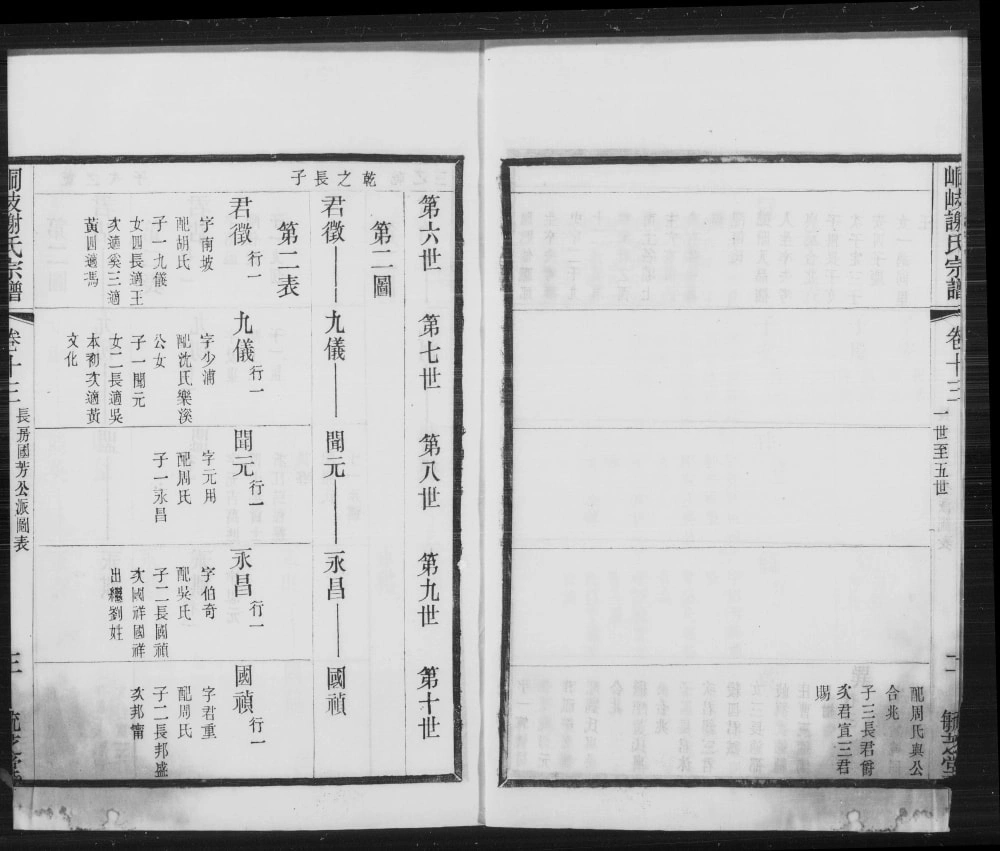 峒岐謝氏宗譜
卷十三
一世至五世
二
毓芝堂
配周氏與公
合兆
子三長君爵
次君宜三君
賜
第六世
第七世
第八世
第九世
第十世
第二圖
乾之長子
君徵
九儀
聞元
永昌
國禎
第二表
君徵 行一
字南坡
配胡氏
子一九儀
女四長適王
次適奚三適
黃四適馮
九儀 行一
字少浦
配沈氏樂溪
公女
子一聞元
女二長適吳
本初次適黃
文化
聞元 行一
字元用
配周氏
子一永昌
永昌 行一
字伯奇
配吳氏
子二長國禎
次國祥國祥
出繼劉姓
國禎 行一
字君重
配周氏
子二長邦盛
次邦甯
峒岐謝氏宗譜
卷十三
長房國芳公派圖表
三